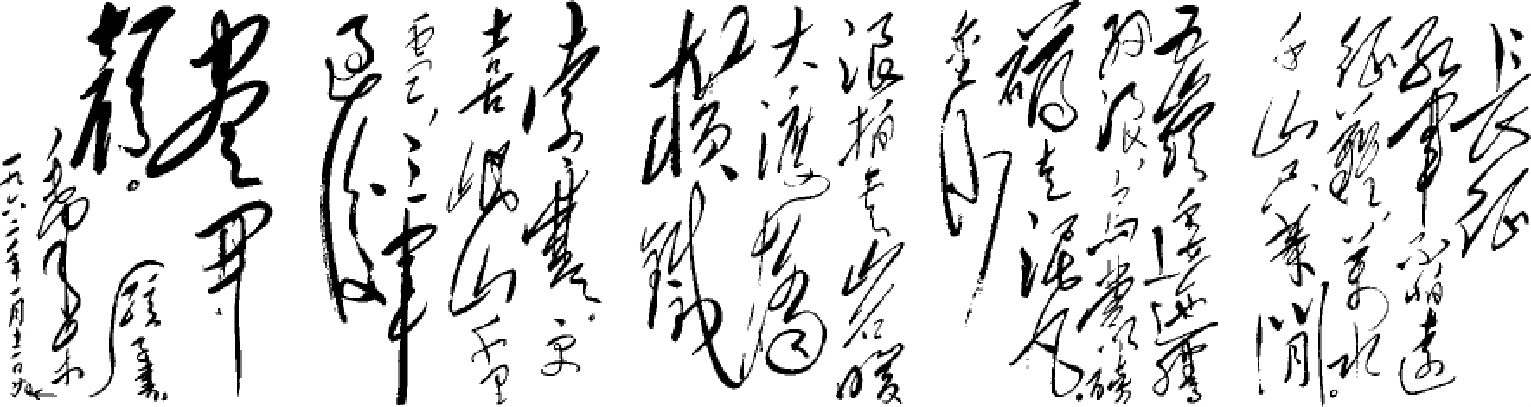 长征
红军不怕远
征难，万水
千山只等闲。
五岭逶迤腾
细浪，乌蒙磅
礴走泥丸。
金沙
浪拍岩暖
大渡桥
横铁
索寒。更
喜岷山千里
雪，三军
过后
尽开
颜。
毛泽东
一九六二年